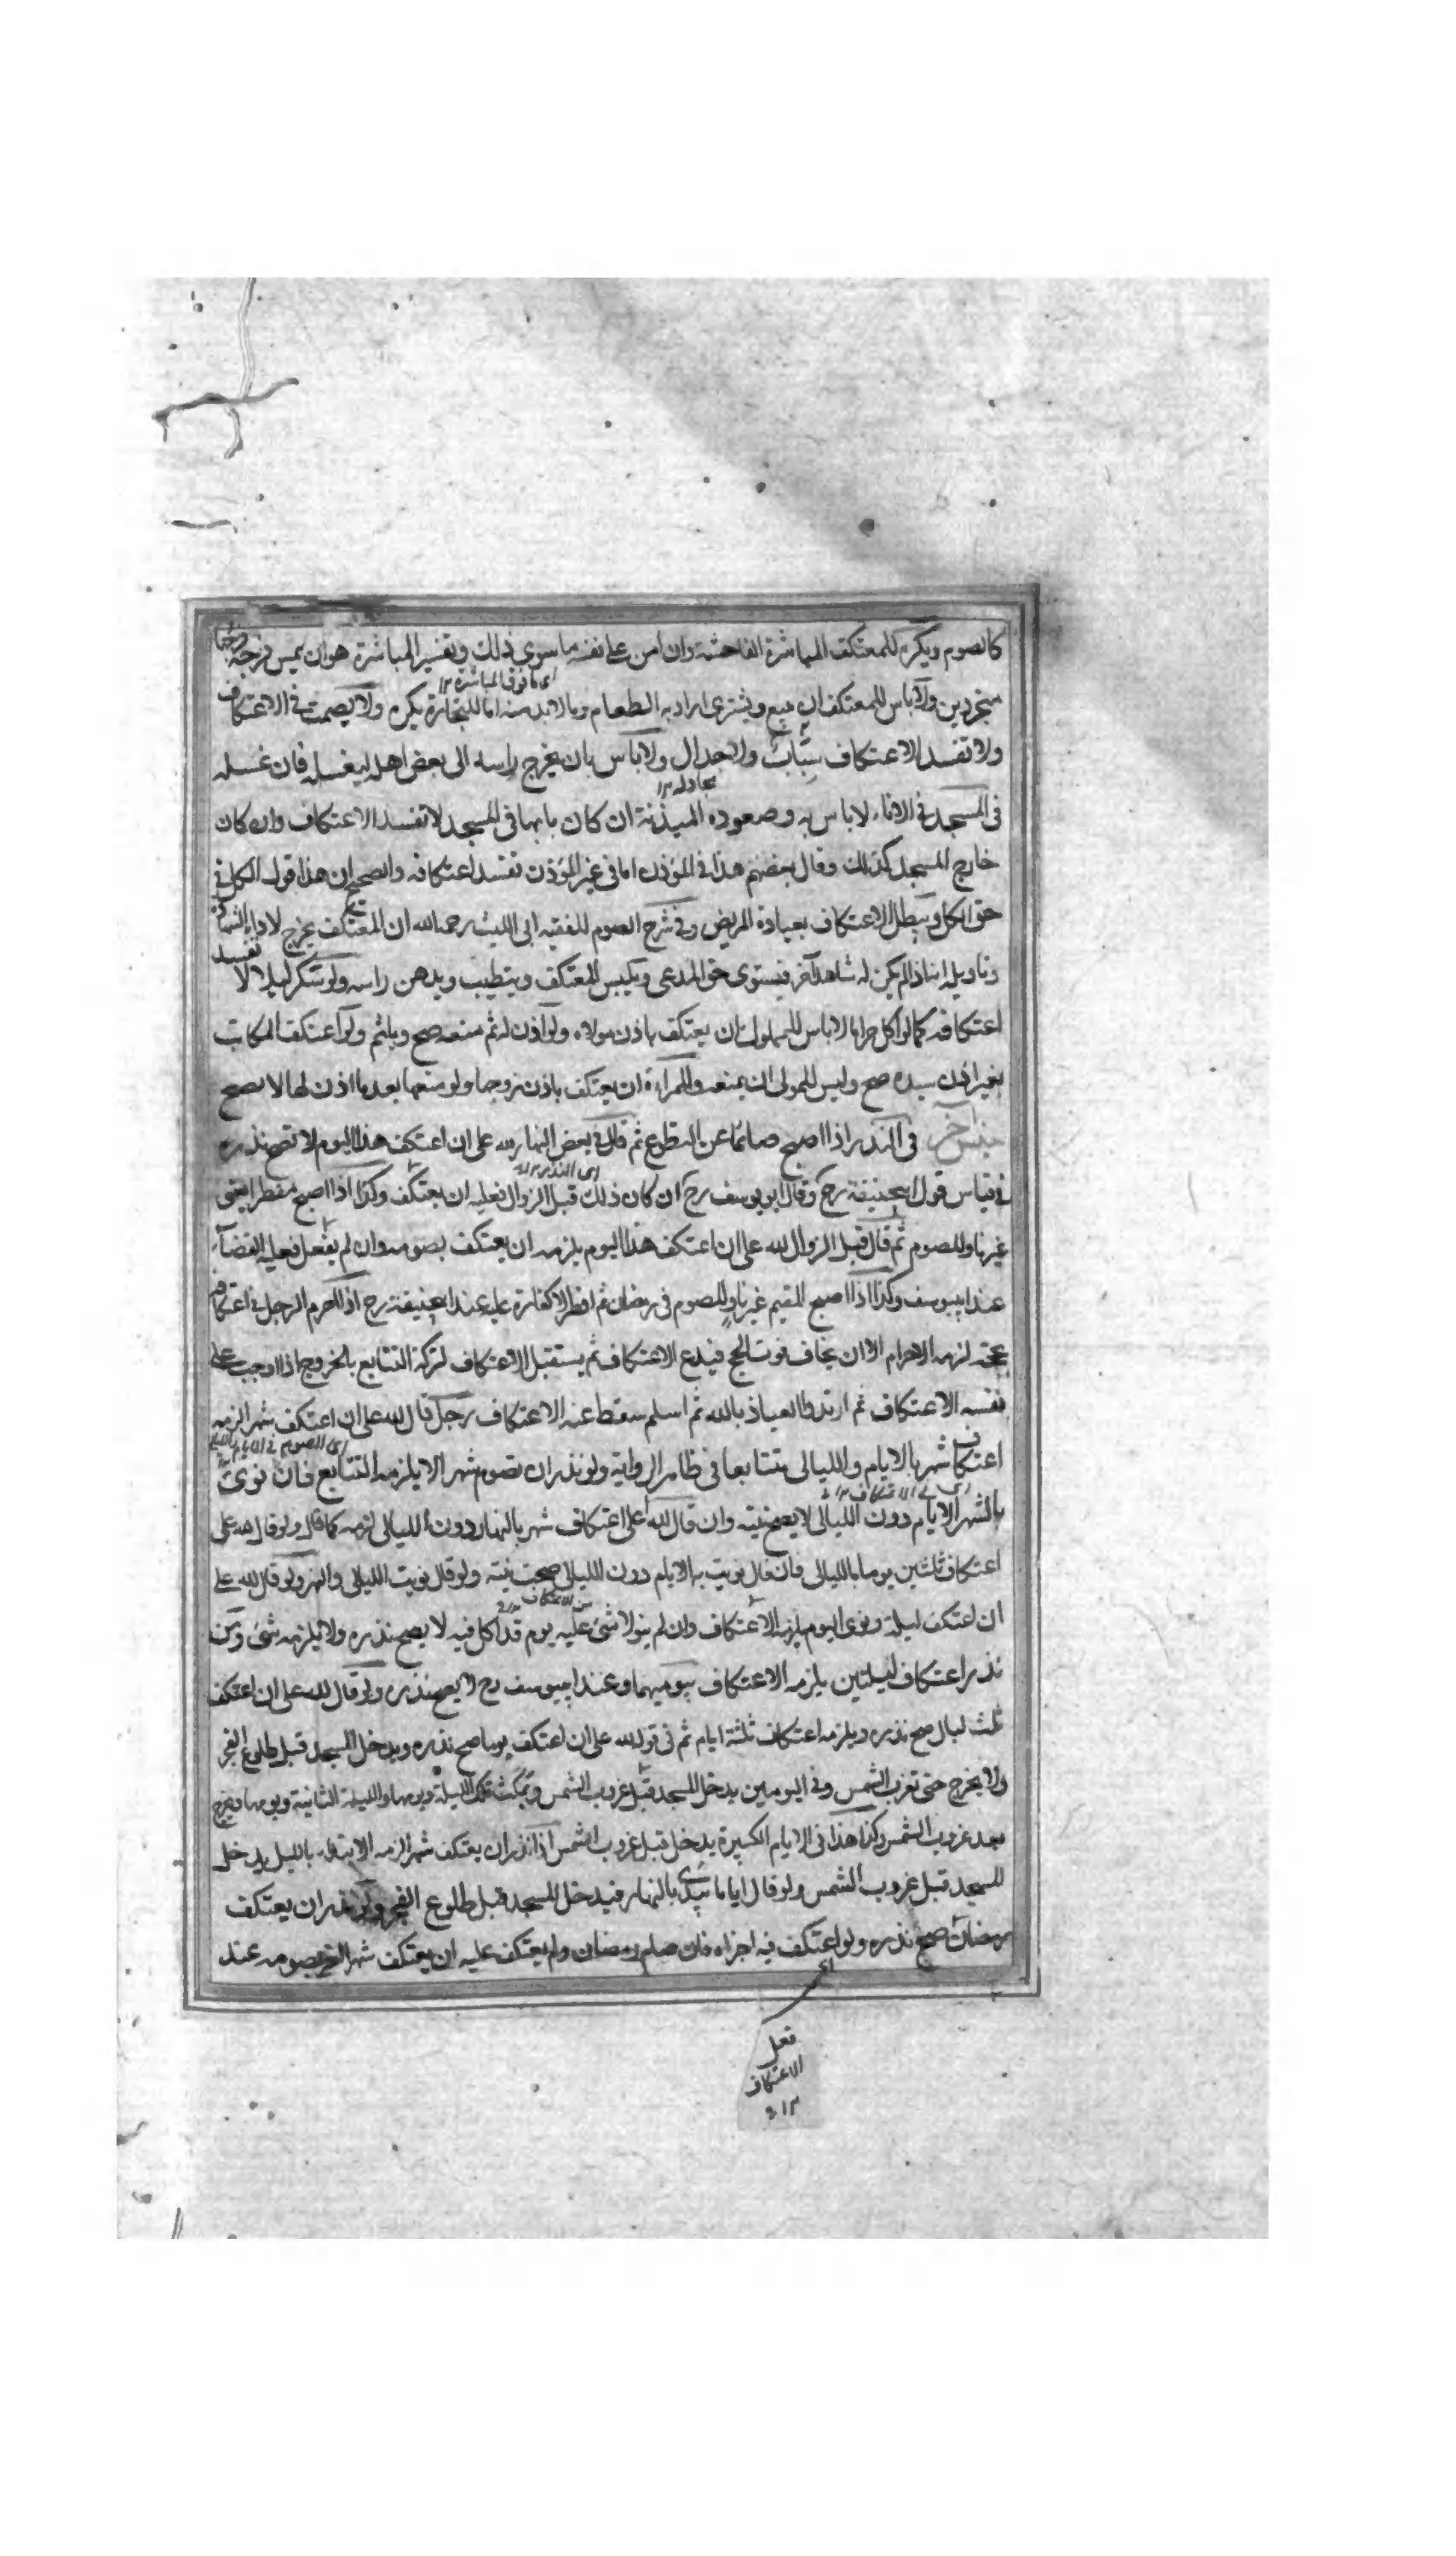 كالصوم ويكره للمعتكف المباشرة الفاحشة وان امن على نفسه ما سوى ذلك وتفسير المباشرة هو ان يمس فرجه فرجها
اى ما فوق المباشرة ١٢
متجردين ولا باس للمعتكف ان يبيع ويشترى اراد به الطعام وما لا بد منه اما للتجارة يكره ولا يصمت فى الاعتكاف
ولا تفسد الاعتكاف سباب ولا جدال ولا باس بان يخرج راسه الى بعض اهله ليغسله فان غسله
مجادله ١٢
فى المسجد فى الاناء لا باس به وصعوده الميذنة ان كان بابها فى المسجد لا تفسد الاعتكاف وان كان
خارج المسجد كذلك وقال بعضهم هذا فى المؤذن اما فى غير المؤذن تفسد اعتكافه والصحيح ان هذا قول الكل فى
حق الكل ويبطل الاعتكاف بعيادة المريض وفى شرح الصوم للفقيه ابى الليث رحمه الله ان المعتكف يخرج لاداء الشهادة
وتاويله انه اذا لم يكن له شاهد آخر فيستوى حق المدعى ويلبس المعتكف ويتطيب ويدهن راسه ولو سكر ليلا لا تفسد
اعتكافه كما لو اكل حراما لا باس للمملوك ان يعتكف باذن مولاه ولو اذن له ثم منعه صح وياثم ولو اعتكف المكاتب
بغير اذن سيده صح وليس للمولى ان يمنعه وللمراءة ان يعتكف باذن زوجها ولو منعها بعد ما اذن لها لا يصح
جنس آخر فى النذر اذا اصبح صائما عن التطوع ثم قال فى بعض النهار لله على ان اعتكف هذا اليوم لا تصح نذره
اى النذر ١٢
فى قياس قول ابيحنيفة رح وقال ابو يوسف رح ان كان ذلك قبل الزوال فعليه ان يعتكف وكذا اذا اصبح مفطرا يعنى
غير ناو للصوم ثم قال قبل الزوال لله على ان اعتكف هذا اليوم يلزمه ان يعتكف بصومه وان لم يفعل فعليه القضاء
عند ابيوسف وكذا اذا اصبح المقيم غير ناو للصوم فى رمضان ثم افطر لا كفارة عليه عند ابيحنيفة رح اذا احرم الرجل فى اعتكافه
بحجة لزمه الاحرام الا ان يخاف فوت الحج فيدع الاعتكاف ثم يستقبل الاعتكاف لتركه التتابع بالخروج اذا اوجب على
نفسه الاعتكاف ثم ارتد والعياذ بالله ثم اسلم سقط عنه الاعتكاف رجل قال لله على ان اعتكف شهرا لزمه
اعتكاف شهر بالايام والليالى متتابعا فى ظاهر الرواية ولو نذر ان تصوم شهرا لا يلزمه التتابع فان نوى
بالشهر الايام دون الليالى لا يصح نيته وان قال لله على اعتكاف شهر بالنهار دون الليالى لزمه كما قال ولو قال لله على
اعتكاف ثلثين يوما بالليالى فان قال نويت به الايام دون الليالى صحت نيته ولو قال نويت الليالى والنهر ولو قال لله على
من الاعتكاف ١٢
ان اعتكف ليلة ونوى اليوم يلزمه الاعتكاف وان لم ينو لا شئ عليه يوم قد اكل فيه لا يصح نذره ولا يلزمه شئ ومن
نذر اعتكاف ليلتين يلزمه الاعتكاف بيوميهما وعند ابيوسف رح لا يصح نذره ولو قال لله على ان اعتكف
ثلث ليال صح نذره ويلزمه اعتكاف ثلثة ايام ثم فى قوله لله على ان اعتكف يوما صح نذره ويدخل المسجد قبل طلوع الفجر
ولا يخرج حتى تغرب الشمس وفى اليومين يدخل المسجد قبل غروب الشمس ويمكث تلك الليلة ويومها والليلة الثانية ويومها ويخرج
بعد غروب الشمس وكذا هذا فى الايام الكثيرة يدخل قبل غروب الشمس اذا نذر ان يعتكف شهرا لزمه الابتداء بالليل يدخل
المسجد قبل غروب الشمس ولو قال اياما يبتدئ بالنهار فيدخل المسجد قبل طلوع الفجر ولو نذر ان يعتكف
رمضان صح نذره ولو اعتكف فيه اجزاه فان صام رمضان ولم يعتكف عليه ان يعتكف شهرا آخر بصومه عند
اى
فعل
الاعتكاف
١٢